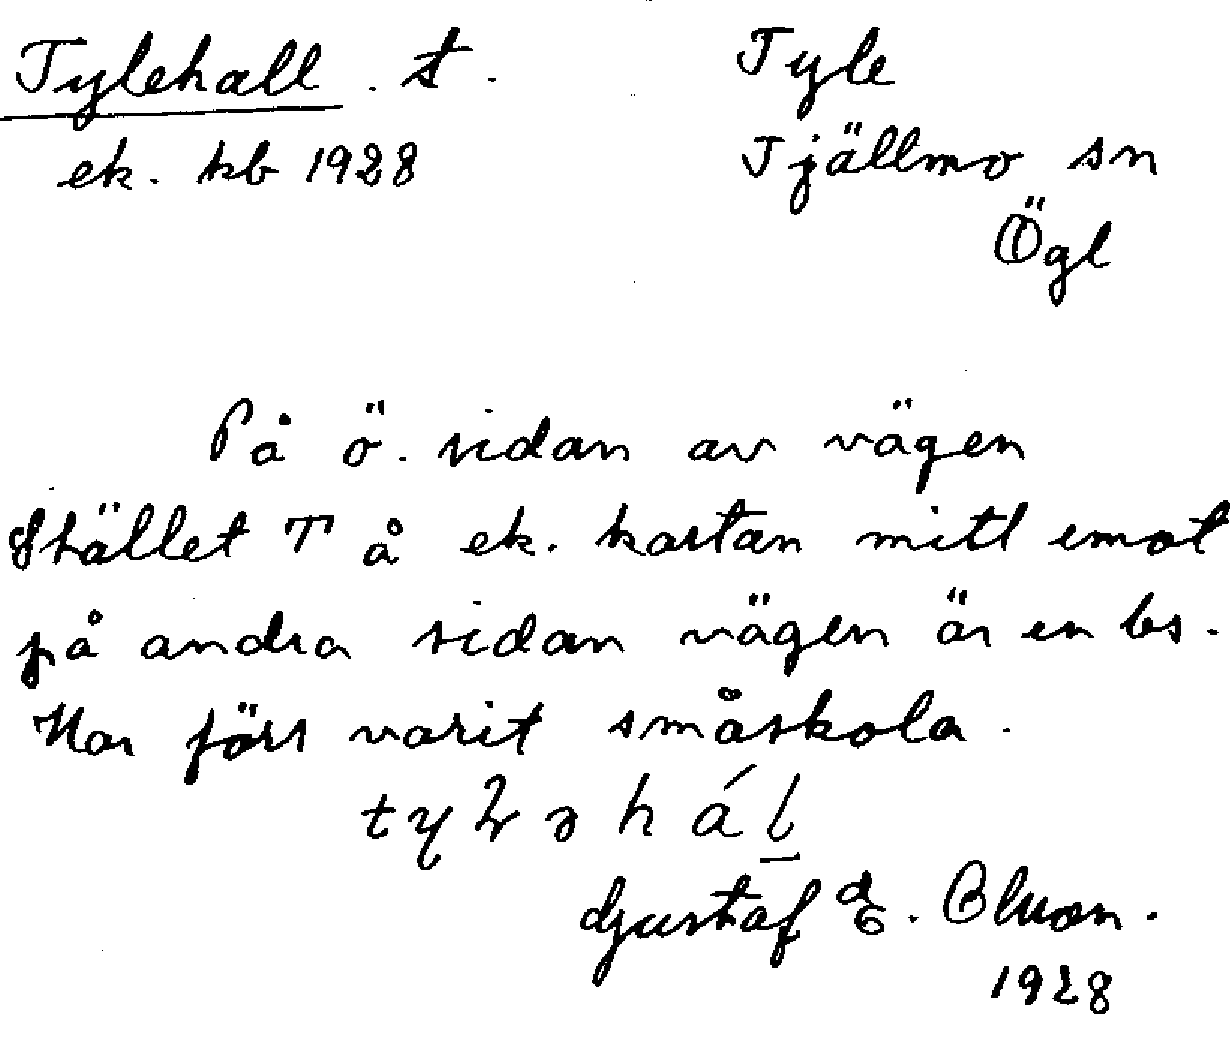 Tylehall . t.
ek. kb 1928
Tyle
Tjällmo sn
Ögl
På ö. sidan av vägen
Stället T å ek. kartan mitt emot
på andra sidan vägen är en bs.
Har förr varit småskola.
Gustaf E. Olson.
1928